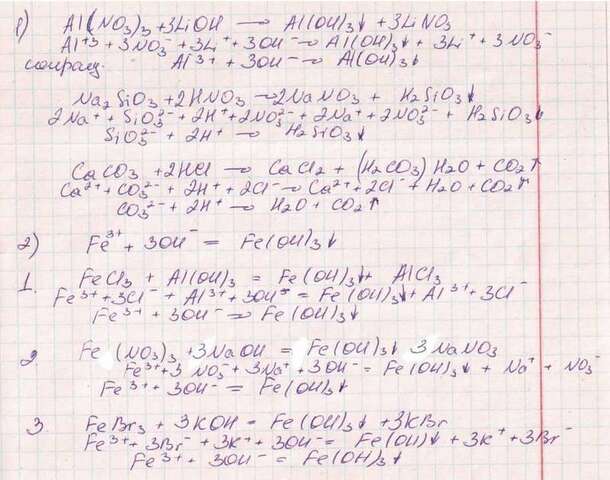 1) Al(NO₃)₃ + 3LiOH → Al(OH)₃↓ + 3LiNO₃
Al⁺³ + 3NO₃⁻ + 3Li⁺ + 3OH⁻ → Al(OH)₃↓ + 3Li⁺ + 3NO₃⁻
сокращ. Al³⁺ + 3OH⁻ → Al(OH)₃↓
Na₂SiO₃ + 2HNO₃ → 2NaNO₃ + H₂SiO₃↓
2Na⁺ + SiO₃²⁻ + 2H⁺ + 2NO₃⁻ → 2Na⁺ + 2NO₃⁻ + H₂SiO₃↓
SiO₃²⁻ + 2H⁺ → H₂SiO₃↓
CaCO₃ + 2HCl → CaCl₂ + (H₂CO₃) H₂O + CO₂↑
Ca²⁺ + CO₃²⁻ + 2H⁺ + 2Cl⁻ → Ca²⁺ + 2Cl⁻ + H₂O + CO₂↑
CO₃²⁻ + 2H⁺ → H₂O + CO₂↑
2) Fe³⁺ + 3OH⁻ = Fe(OH)₃↓
1. FeCl₃ + Al(OH)₃ = Fe(OH)₃↓ + AlCl₃
Fe³⁺ + 3Cl⁻ + Al³⁺ + 3OH⁻ = Fe(OH)₃↓ + Al³⁺ + 3Cl⁻
Fe³⁺ + 3OH⁻ → Fe(OH)₃↓
2 Fe (NO₃)₃ + 3NaOH = Fe(OH)₃↓ 3NaNO₃
Fe³⁺ + 3NO₃⁻ + 3Na⁺ + 3OH⁻ = Fe(OH)₃↓ + Na⁺ + NO₃⁻
Fe³⁺ + 3OH⁻ = Fe(OH)₃↓
3 FeBr₃ + 3KOH = Fe(OH)₃↓ + 3KBr
Fe³⁺ + 3Br⁻ + 3K⁺ + 3OH⁻ = Fe(OH)↓ + 3K⁺ + 3Br⁻
Fe³⁺ + 3OH⁻ = Fe(OH)₃↓